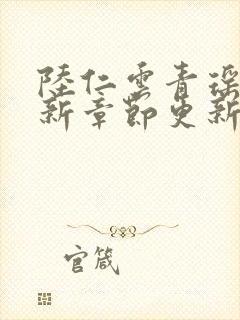 陸仁雲青瑤
新章節更新
官箴